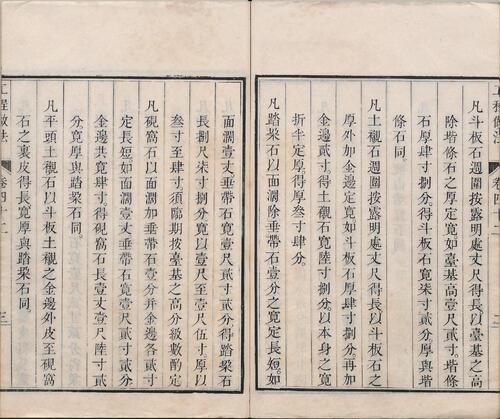 工程做法 卷四十二 三
凡斗板石週圍按露明處丈尺得長以臺基之高
除堦條石之厚定寬如臺基高壹尺貳寸堦條
石厚肆寸捌分得斗板石寬柒寸貳分厚與堦
條石同。
凡土襯石週圍按露明處丈尺得長以斗板石之
厚外加金邊定寬如斗板石厚肆寸捌分再加
金邊貳寸得土襯石寬陸寸捌分以本身之寬
折半定厚得厚叁寸肆分。
凡踏垜石以面濶除垂帶石壹分之寬定長短。如
面濶壹丈垂帶石寬壹尺貳寸貳分得踏垜石
長捌尺柒寸捌分寬以壹尺至壹尺伍寸厚以
叁寸至肆寸須臨期按臺基之高分級數酌定
凡硯窩石以面濶加垂帶石壹分并金邊各貳寸
定長短如面濶壹丈垂帶石寬壹尺貳寸貳分
金邊共寬肆寸得硯窩石長壹丈壹尺陸寸貳
分寬厚與踏垜石同。
凡平頭土襯石以斗板土襯之金邊外皮至硯窩
石之裏皮得長寬厚與踏垜石同。
工程做法 卷四十二 三